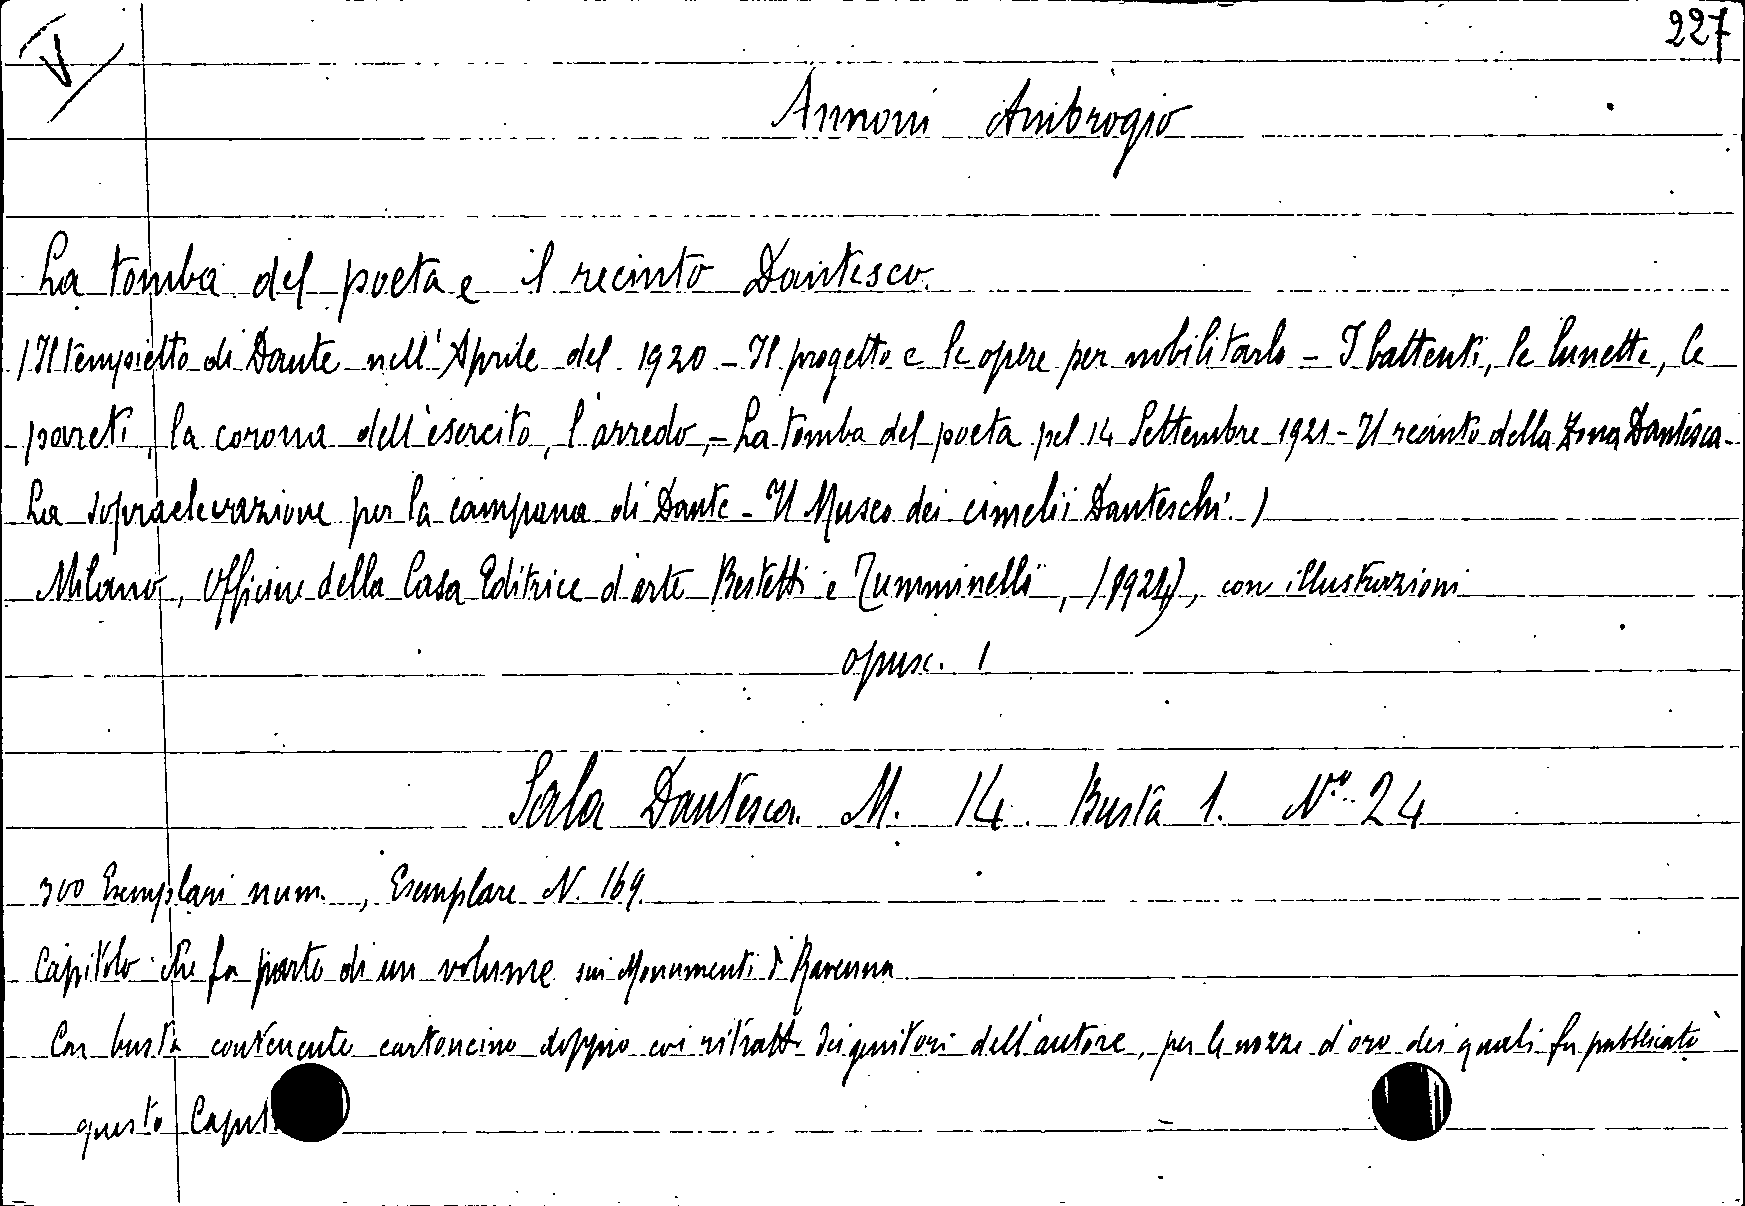 V
227
Annoni Ambrogio
La tomba del poeta e il recinto Dantesco.
(Il tempietto di Dante nell'Aprile del 1920 - Il progetto e le opere per nobilitarlo - I battenti, le lunette, le
pareti, la corona dell'esercito, l'arredo, - La tomba del poeta pel 14 Settembre 1921 - Il recinto della Zona Dantesca -
La sopraelevazione per la campana di Dante - Il Museo dei cimelii Danteschi.)
Milano, Officine della Casa Editrice d'arte Bestetti e Tumminelli, (1924), con illustrazioni
opusc. 1
Sala Dantesca. M. 14. Busta 1. No 24
300 Esemplari num., Esemplare N. 169.
Capitolo che fa parte di un volume sui Monumenti di Ravenna
Con busta contenente cartoncino doppio coi ritratti dei genitori dell'autore, per le nozze d'oro dei quali fu pubblicato
questo Capit